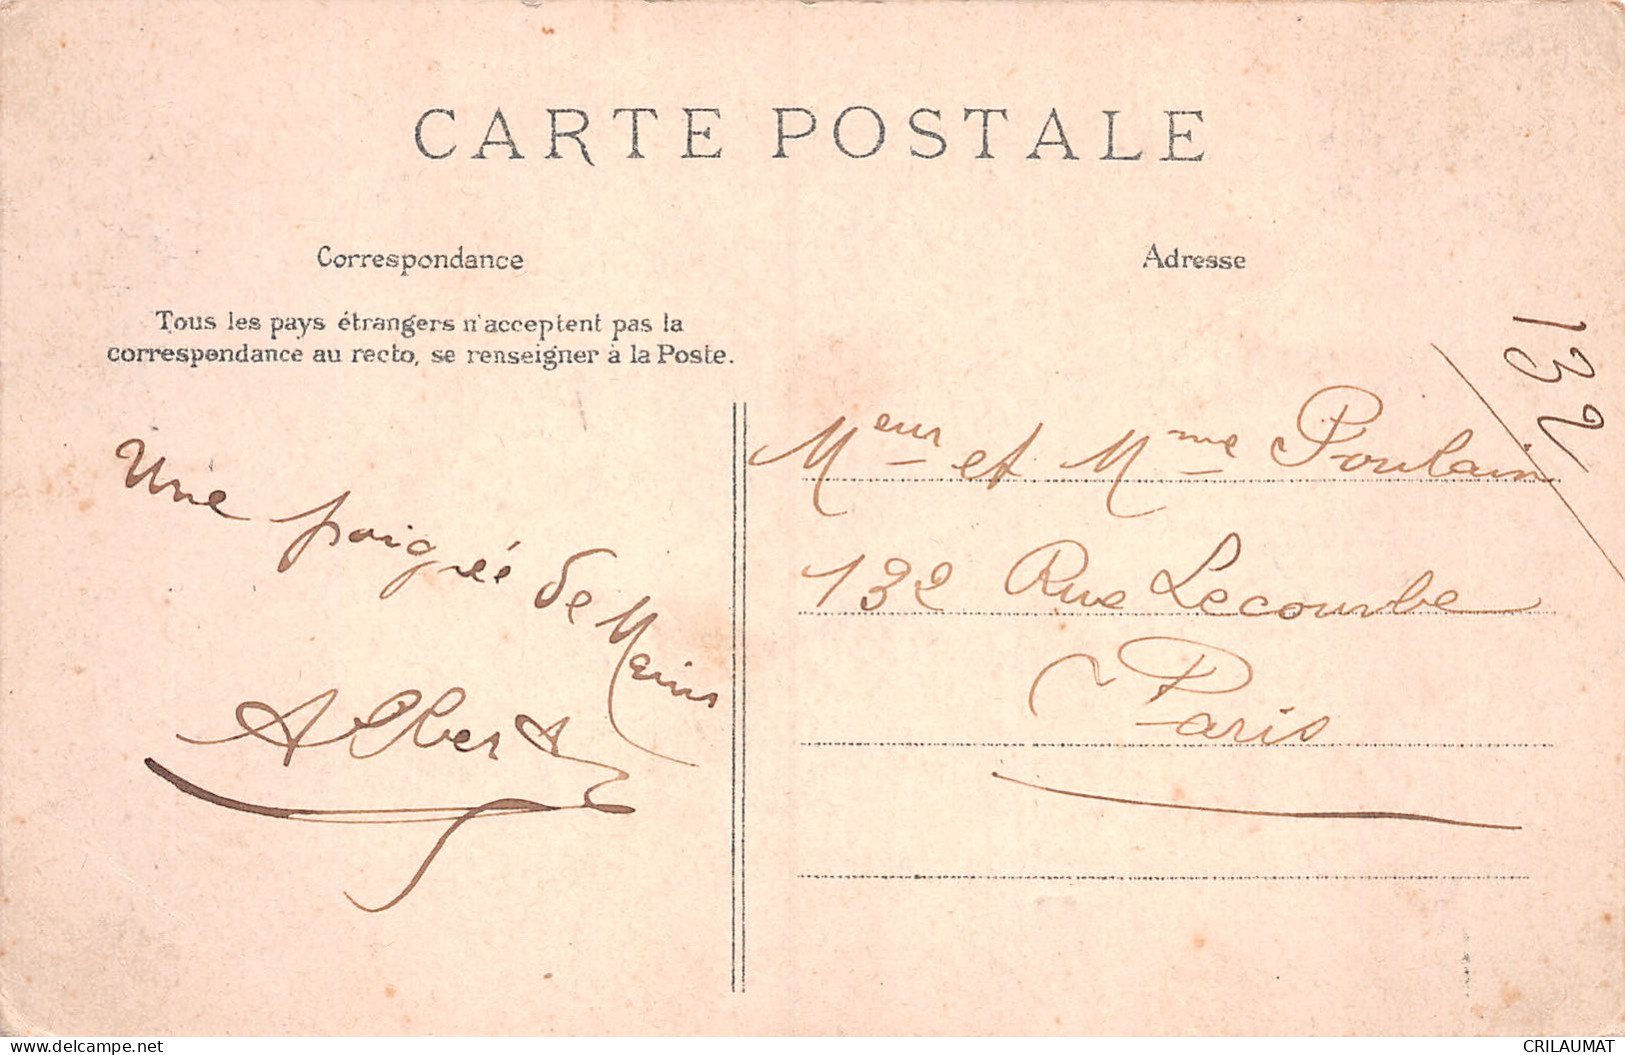 CARTE POSTALE
Correspondance
Tous les pays étrangers n'acceptent pas la
correspondance au recto, se renseigner à la Poste.
Une poignée de Mains
Albert
Adresse
132
Meur et Mme Poulain
132 Rue Lecourbe
Paris
www.delcampe.net
CRILAUMAT